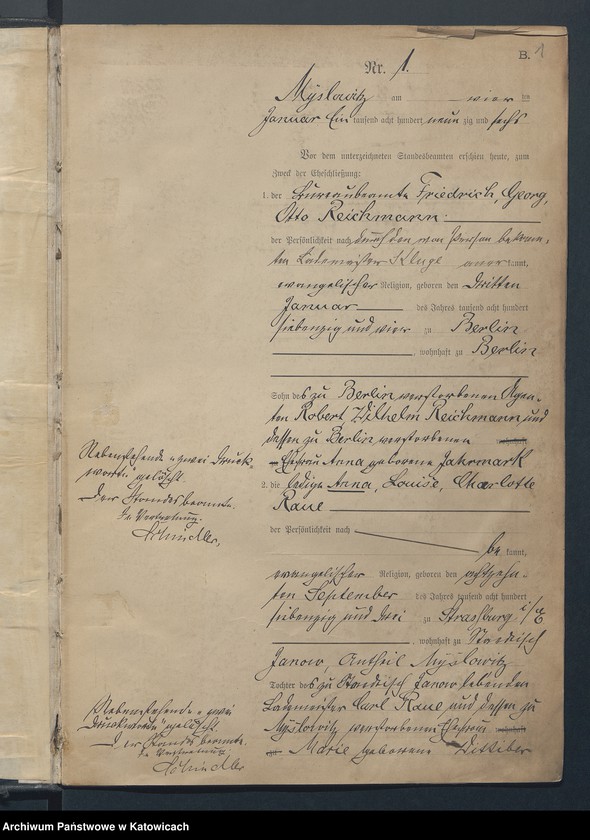 B. 1
Nr. 1.
Myslowitz am vier ten
Januar Ein tausend acht hundert neun zig und sechs
Vor dem unterzeichneten Standesbeamten erschien heute, zum
Zweck der Eheschließung:
1. der Bureaubeamte Friedrich, Georg,
Otto Reichmann
der Persönlichkeit nach durch den von Person bekann-
ten Lademeister Kluge aner kannt,
evangelischer Religion, geboren den dritten
Januar des Jahres tausend acht hundert
siebenzig und vier zu Berlin
, wohnhaft zu Berlin
Sohn des zu Berlin verstorbenen Agen-
ten Robert Wilhelm Reichmann und
dessen zu Berlin verstorbenen
Ehefrau Anna geborene Jahrmark
2. die ledige Anna, Louise, Charlotte
Raue
der Persönlichkeit nach
be kannt,
evangelischer Religion, geboren den achtzehn-
ten September des Jahres tausend acht hundert
siebenzig und drei zu Strassburg i/E
, wohnhaft zu Städtisch
Janow, Antheil Myslowitz
Tochter des zu Städtisch Janow lebenden
Lademeister Carl Raue und dessen zu
Myslowitz verstorbenen Ehefrau
Marie geborene
Nebenstehende zwei Druck-
worte gelöscht.
Der Standesbeamte.
In Vertretung.
Schindler,
Nebenstehende zwei
Druckworte gelöscht.
Der Standesbeamte.
In Vertretung
Schindler
Archiwum Państwowe w Katowicach